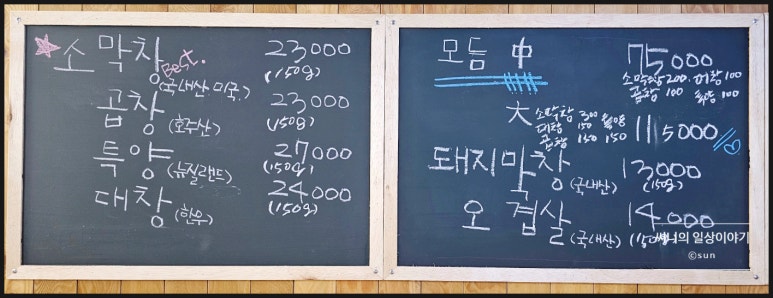 소 막창 Best. 23000
(국내산 미국.) (150g)
곱창 23000
(호주산) (150g)
특양 27000
(뉴질랜드) (150g)
대창 24000
(한우) (150g)
모듬 中 75000
소막창 200. 대창 100
곱창 100 특양 100
大 소막창 300 특양 115000
대창 150
곱창 150 150
돼지막창 13000
(국내산) (150g)
오겹살 14000
(국내산) (150g)
써니의 일상이야기
©sun